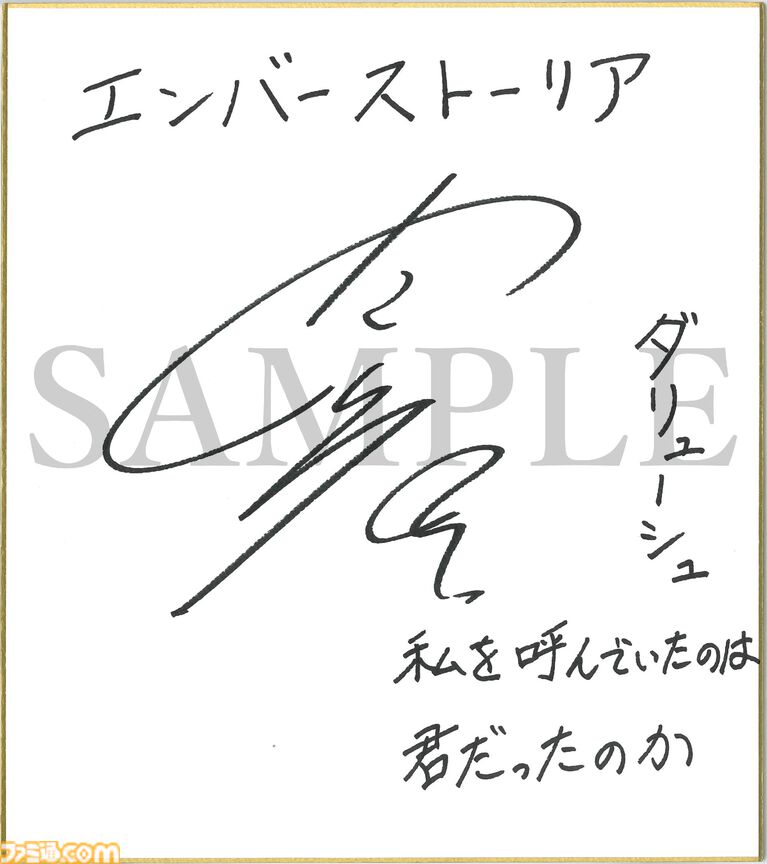 エンバーストーリア
SAMPLE
ダリューシュ
私を呼んでいたのは
君だったのか
ファミ通.com